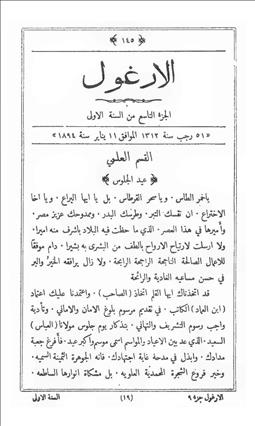 ﴿ ١٤٥ ﴾
الارغول
الجزء التاسع من السنة الاولى
«٥١ رجب سنة ١٣١٢ الموافق ١١ يناير سنة ١٨٩٤»
القسم العلمي
﴿ عيد الجلوس ﴾
ياخمر الطاس . وياسحر القرطاس . بل يا ايها اليراع . ويا اخا
الاختراع . ان نفسك التبر . وطرسك البدر . وممدوحك عزيز مصر .
وأميرها في هذا العصر . الذي ما حظت فيه البلاد باشرف منه اميرا .
ولا ارسلت لارتياح الارواح بالطف من البشرى به بشيرا . دام موفقًا
للاعمال الصالحة الناجحة الراجحة الرابحة . ولا زال يرافقه الخير والبر
في حسن مساعيه الغادية والرائحة
قد اتخذناك ايها القلم اتخاذ (الصاحب) . واعتمدنا عليك اعتماد
(ابن العماد) الكاتب . في تقديم مرسوم بلوغ الامان والاماني . وتأدية
واجب رسوم التشريف والتهاني . بتذكار يوم جلوس مولانا (العباس)
السعيد . الذي عد بين الاعياد والمواسم اسمى موسم واكبر عيد . فأفرغ جعبة
مدادك . وابذل في مدحه غاية اجتهادك . فانه الجوهرة الثمينة السميه .
وخير فروع الشجرة المحمدية العلويه . بل مشكاة انوارها الساطعه .
الارغول جزء ٩ (١٩) السنة الاولى